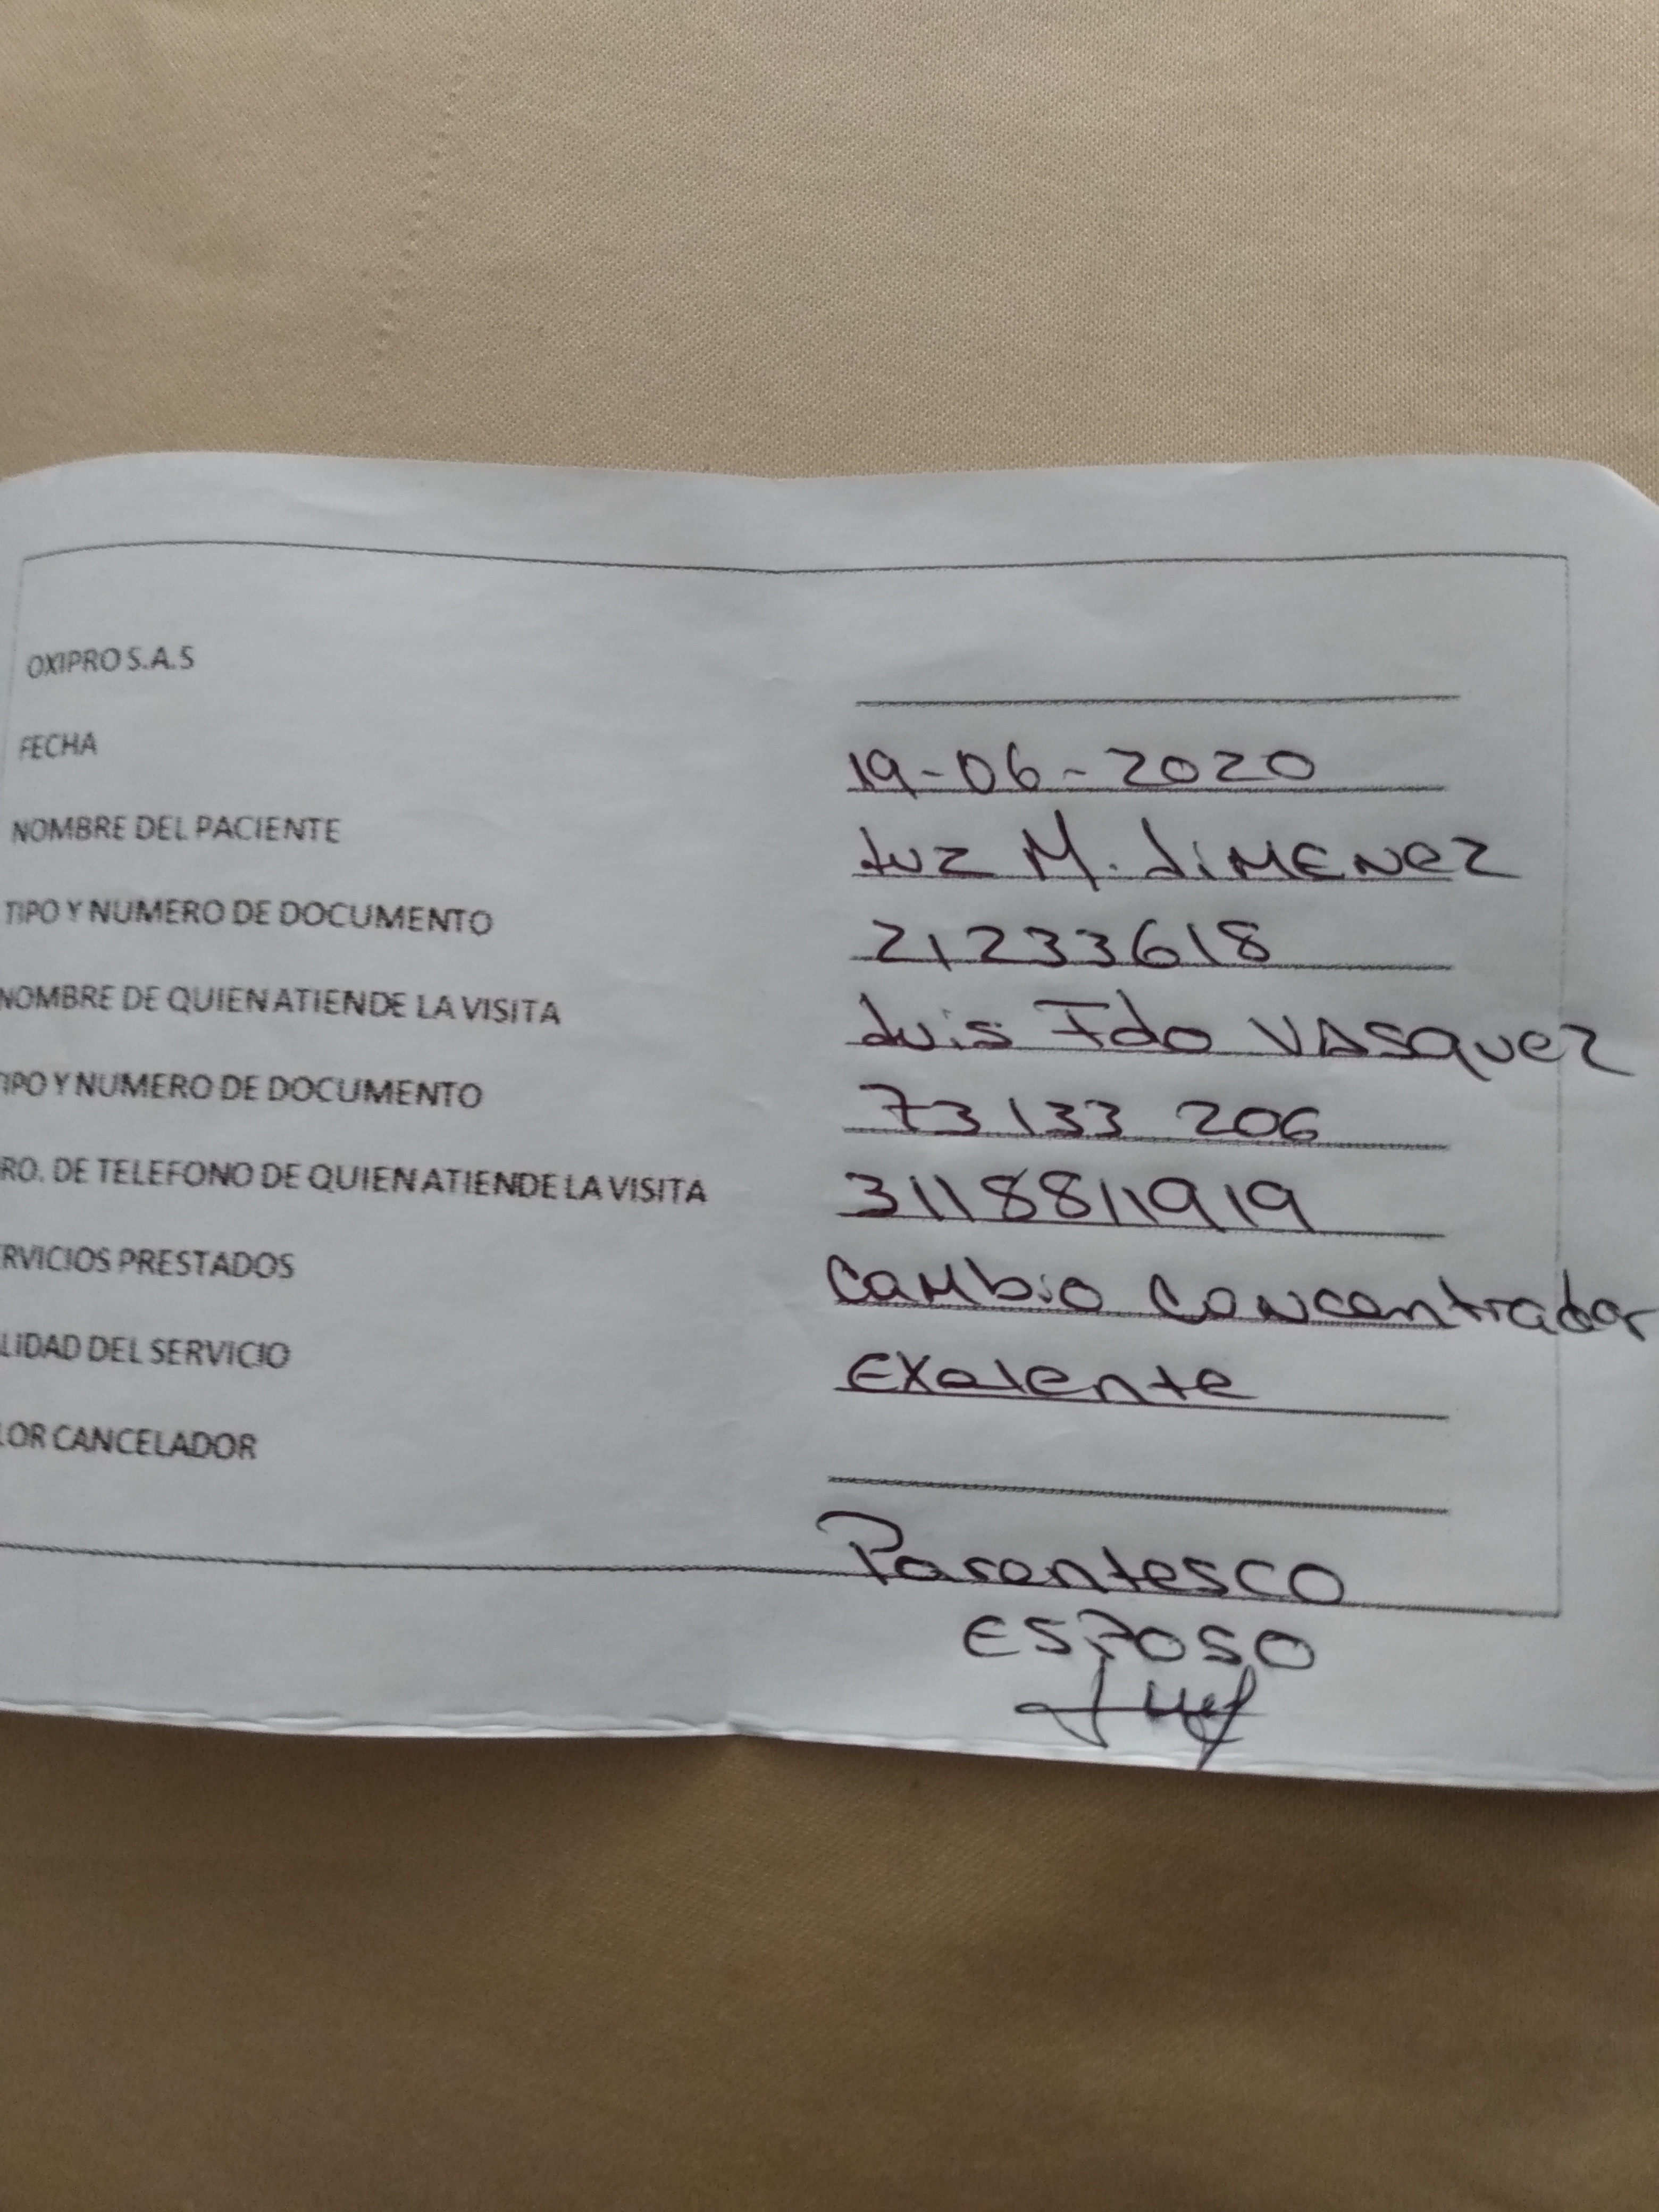 OXIPRO S.A.S
FECHA 19-06-2020
NOMBRE DEL PACIENTE Luz M. JiMENez
TIPO Y NUMERO DE DOCUMENTO 21233618
NOMBRE DE QUIEN ATIENDE LA VISITA Luis Fdo VASquez
IPO Y NUMERO DE DOCUMENTO 73133 206
RO. DE TELEFONO DE QUIEN ATIENDE LA VISITA 3118811919
RVICIOS PRESTADOS Cambio Concentrador
LIDAD DEL SERVICIO Exelente
LOR CANCELADOR
Parentesco
ESPOSO